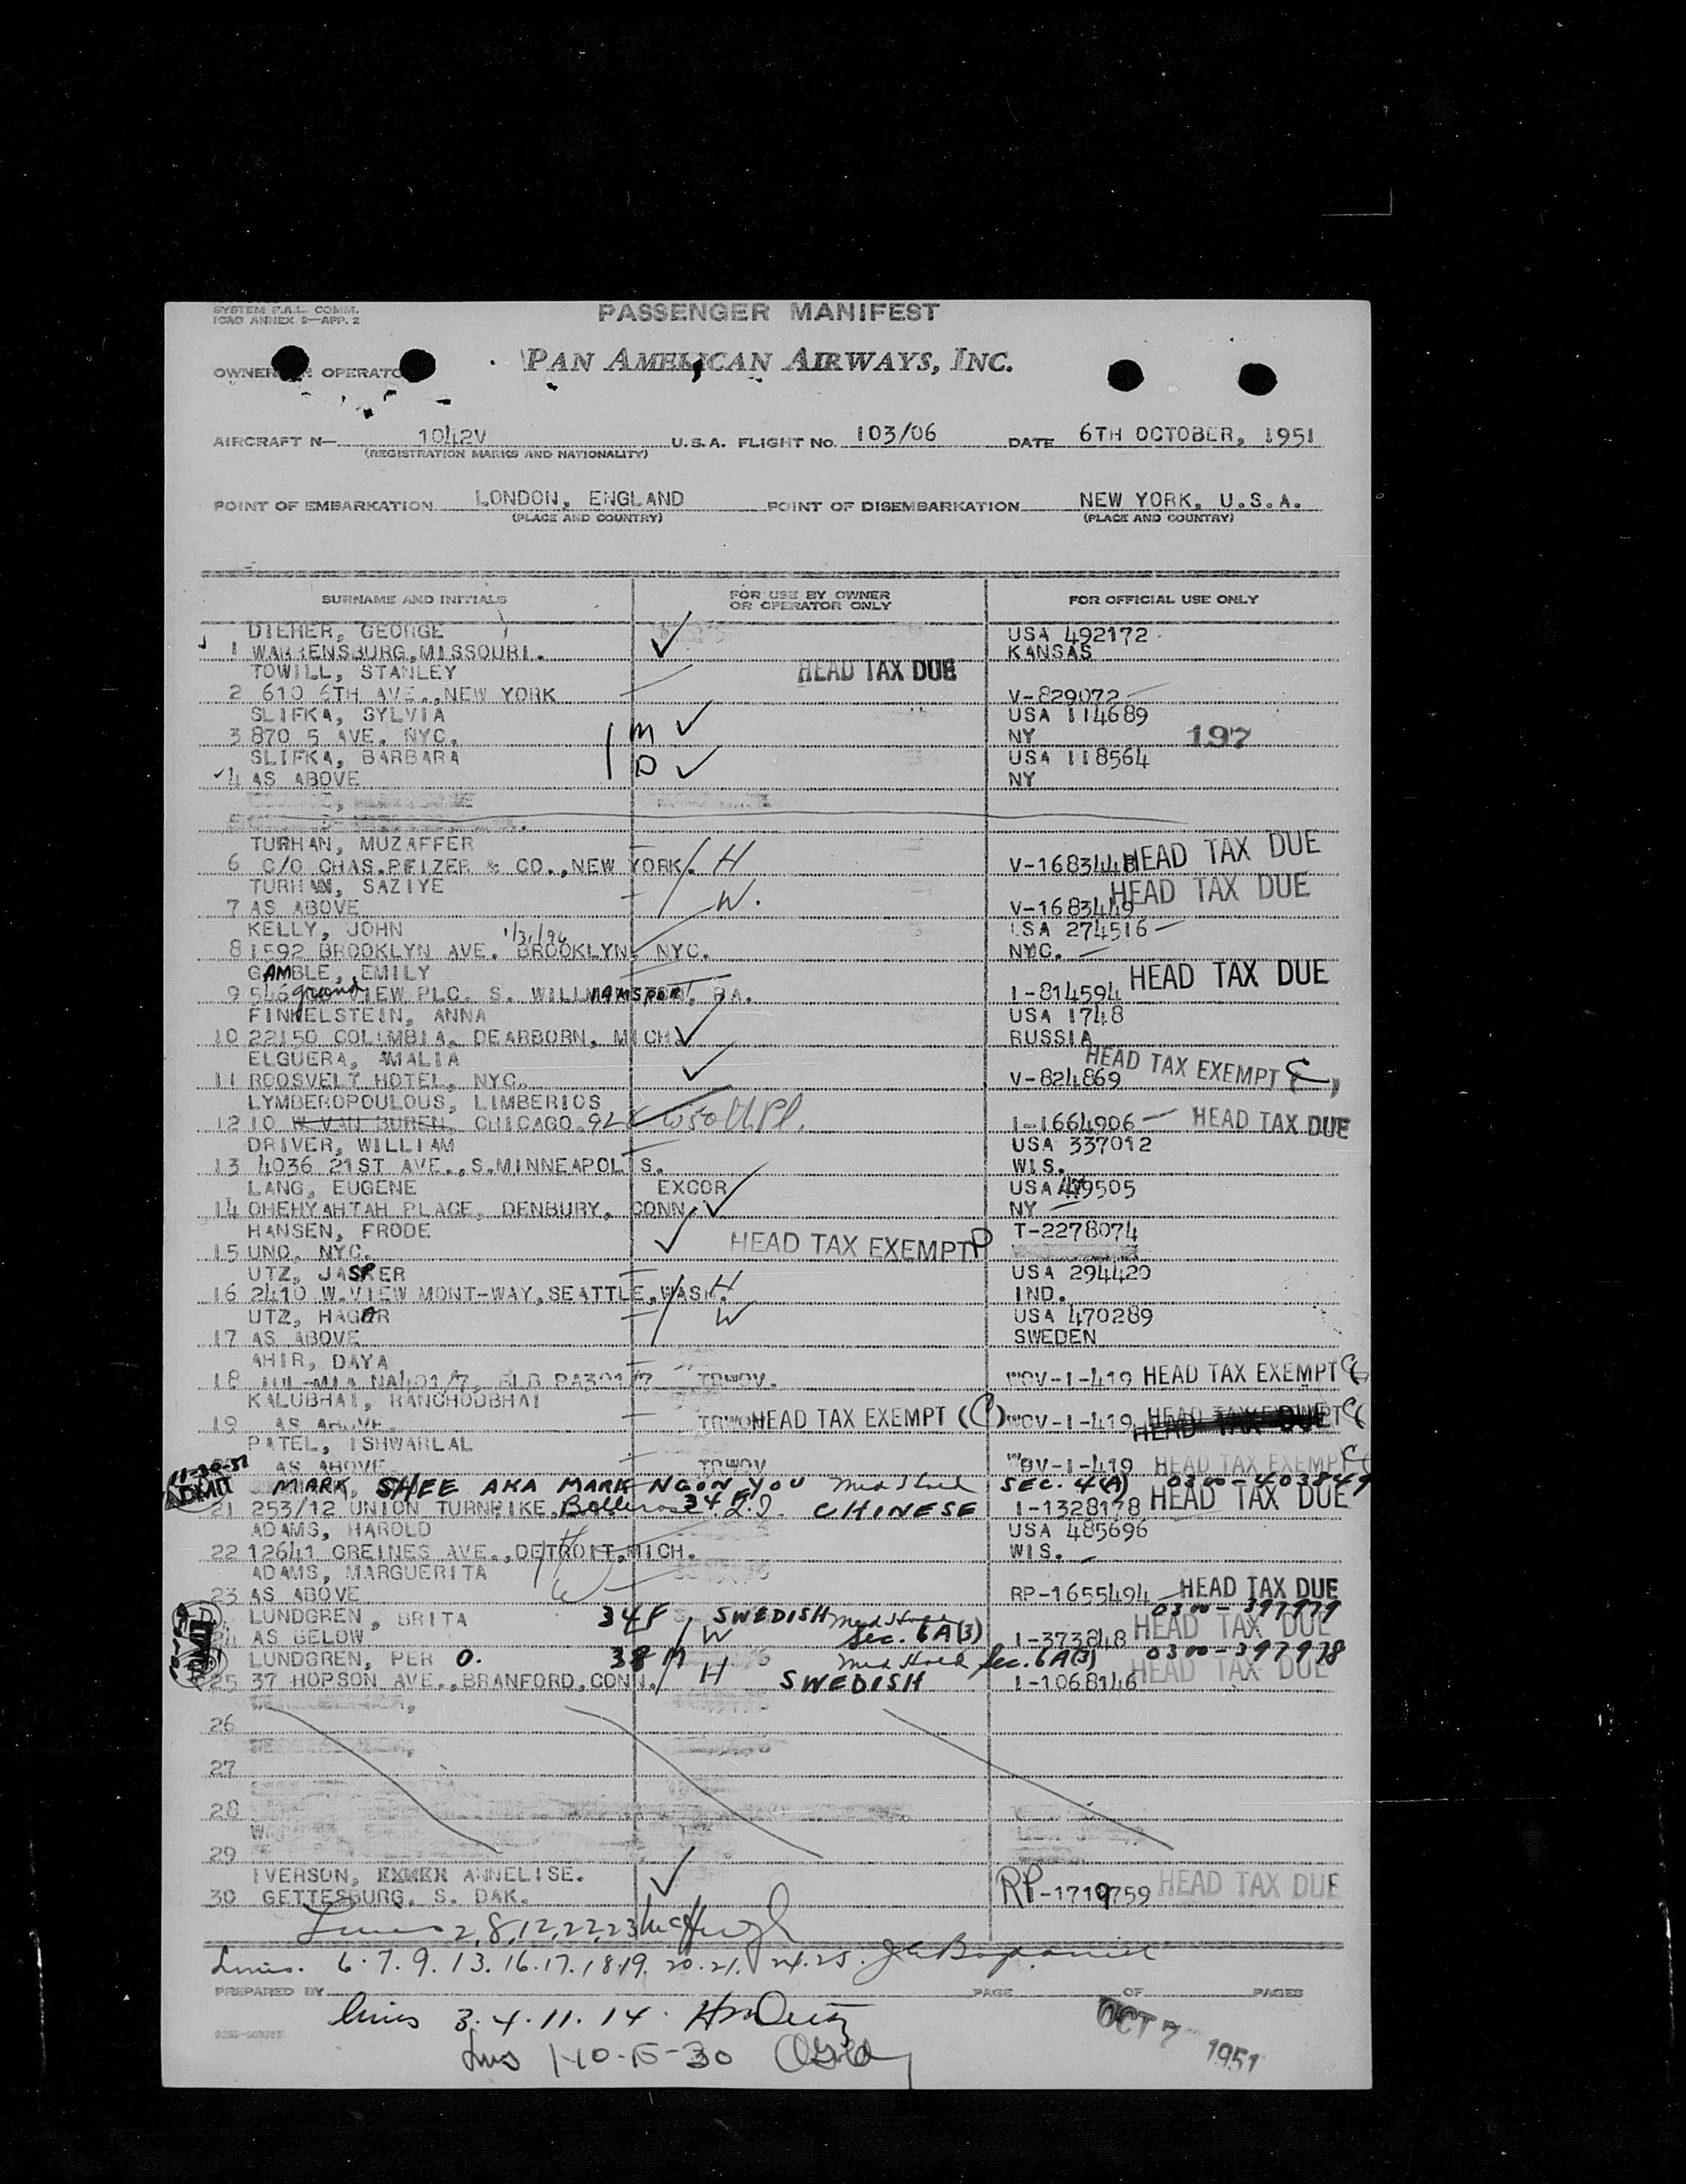 SYSTEM F.A.L. COMM.
ICAO ANNEX 9—APP. 2
PASSENGER MANIFEST
OWNER OR OPERATOR
PAN AMERICAN AIRWAYS, INC.
AIRCRAFT N— 1042V U.S.A. FLIGHT NO. 103/06 DATE 6TH OCTOBER, 1951
(REGISTRATION MARKS AND NATIONALITY)
POINT OF EMBARKATION LONDON, ENGLAND POINT OF DISEMBARKATION NEW YORK, U.S.A.
(PLACE AND COUNTRY) (PLACE AND COUNTRY)
SURNAME AND INITIALS FOR USE BY OWNER OR OPERATOR ONLY FOR OFFICIAL USE ONLY
DIEHER, GEORGE USA 492172
1 WARRENSBURG, MISSOURI. KANSAS
TOWILL, STANLEY HEAD TAX DUE
2 610 6TH AVE., NEW YORK V-829072
SLIFKA, SYLVIA USA 114689
3 870 5 AVE. NYC. M NY 197
SLIFKA, BARBARA USA 118564
4 AS ABOVE D NY
5
TURHAN, MUZAFFER
6 C/O CHAS. PFIZER & CO., NEW YORK. H V-1683448 HEAD TAX DUE
TURHAN, SAZIYE
7 AS ABOVE W. V-1683449 HEAD TAX DUE
KELLY, JOHN USA 274516
8 1592 BROOKLYN AVE. BROOKLYN, NYC. NYC.
GAMBLE, EMILY
9 546 grand VIEW PLC. S. WILLIAMSPORT, PA. I-814594 HEAD TAX DUE
FINKELSTEIN, ANNA USA 1748
10 22150 COLUMBIA, DEARBORN, MICH. RUSSIA
ELGUERA, AMALIA
11 ROOSVELT HOTEL, NYC. V-824869 HEAD TAX EXEMPT C
LYMBEROPOULOUS, LIMBERIOS
12 10 W. VAN BUREN, CHICAGO. I-1664906 HEAD TAX DUE
DRIVER, WILLIAM USA 337012
13 4036 21ST AVE., S. MINNEAPOLIS. WIS.
LANG, EUGENE EXCOR USA 49505
14 OHEHYAHTAH PLACE, DENBURY, CONN. NY
HANSEN, FRODE T-2278074
15 UNO, NYC. HEAD TAX EXEMPT
UTZ, JASPER USA 294420
16 2410 W. VIEW MONT-WAY, SEATTLE, WASH. H IND.
UTZ, HAGAR USA 470289
17 AS ABOVE W SWEDEN
AHIR, DAYA
18 TRWOV. WOV-1-419 HEAD TAX EXEMPT C
KALUBHAI, RANCHODBHAI
19 AS ABOVE. TRWOV HEAD TAX EXEMPT (C) WOV-1-419 HEAD TAX DUE
PATEL, ISHWARLAL
AS ABOVE. TRWOV WOV-1-419 HEAD TAX EXEMPT C
11-30-51 ADMIT MARK, SHEE AKA MARK NGON YOU SEC. 4(A) 0300-403849
21 253/12 UNION TURNPIKE, 34 F CHINESE I-1328178 HEAD TAX DUE
ADAMS, HAROLD USA 485696
22 12641 GREINES AVE., DETROIT, MICH. H WIS.
ADAMS, MARGUERITA
23 AS ABOVE W RP-1655494 HEAD TAX DUE
LUNDGREN, BRITA 34 F SWEDISH 0300-397979
24 AS BELOW W Sec. 6A(3) I-373848 HEAD TAX DUE
LUNDGREN, PER O. 38 M Sec. 6A(3) 0300-397978
25 37 HOPSON AVE., BRANFORD, CONN. H SWEDISH I-1068146 HEAD TAX DUE
26
27
28
29
IVERSON, ANNELISE.
30 GETTESBURG, S. DAK. RP-1719759 HEAD TAX DUE
Lines 2, 8, 12, 22, 23 McHugh
Lines. 6. 7. 9. 13. 16. 17. 18. 19. 20. 21. 24. 25.
PREPARED BY PAGE OF PAGES
lines 3. 4. 11. 14.
Lns 1-10-15-30
OCT 7 1951